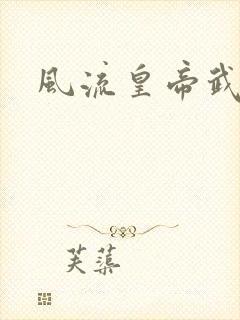 風流皇帝武
芙蕖